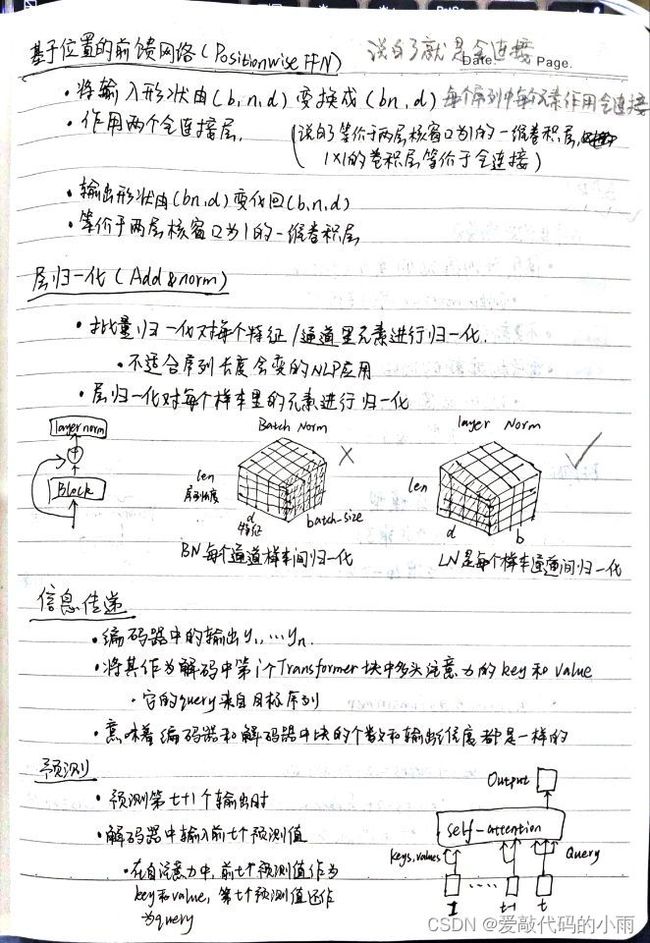 基于位置的前馈网络(Positionwise FFN) 说白了就是全连接
Date. Page.
·将输入形状由(b,n,d)变换成(bn,d) 每个序列中每个元素作用全连接
·作用两个全连接层.
(说白了等价于两层核窗口为1的一维卷积层,
1×1的卷积层等价于全连接)
·输出形状由(bn,d)变化回(b,n,d)
·等价于两层核窗口为1的一维卷积层
层归一化(Add&norm)
·批量归一化对每个特征/通道里元素进行归一化.
·不适合序列长度会变的NLP应用
·层归一化对每个样本里的元素进行归一化
layernorm
+
Block
Batch Norm
len
序列长度
d
特征
batch-size
BN每个通道样本间归一化
layer Norm
len
d
b
LN是每个样本通道间归一化
信息传递
·编码器中的输出y₁,…yn.
·将其作为解码中第i个Transformer块中多头注意力的key和value
·它的query来自目标序列
·意味着编码器和解码器中块的个数和输出维度都是一样的
预测
·预测第t+1个输出时
·解码器中输入前t个预测值
·在自注意力中,前t个预测值作为
key和value,第t个预测值还作
为query
Output
self-attention
keys,values
Query
1 ····· t-1 t
CSDN @爱敲代码的小雨